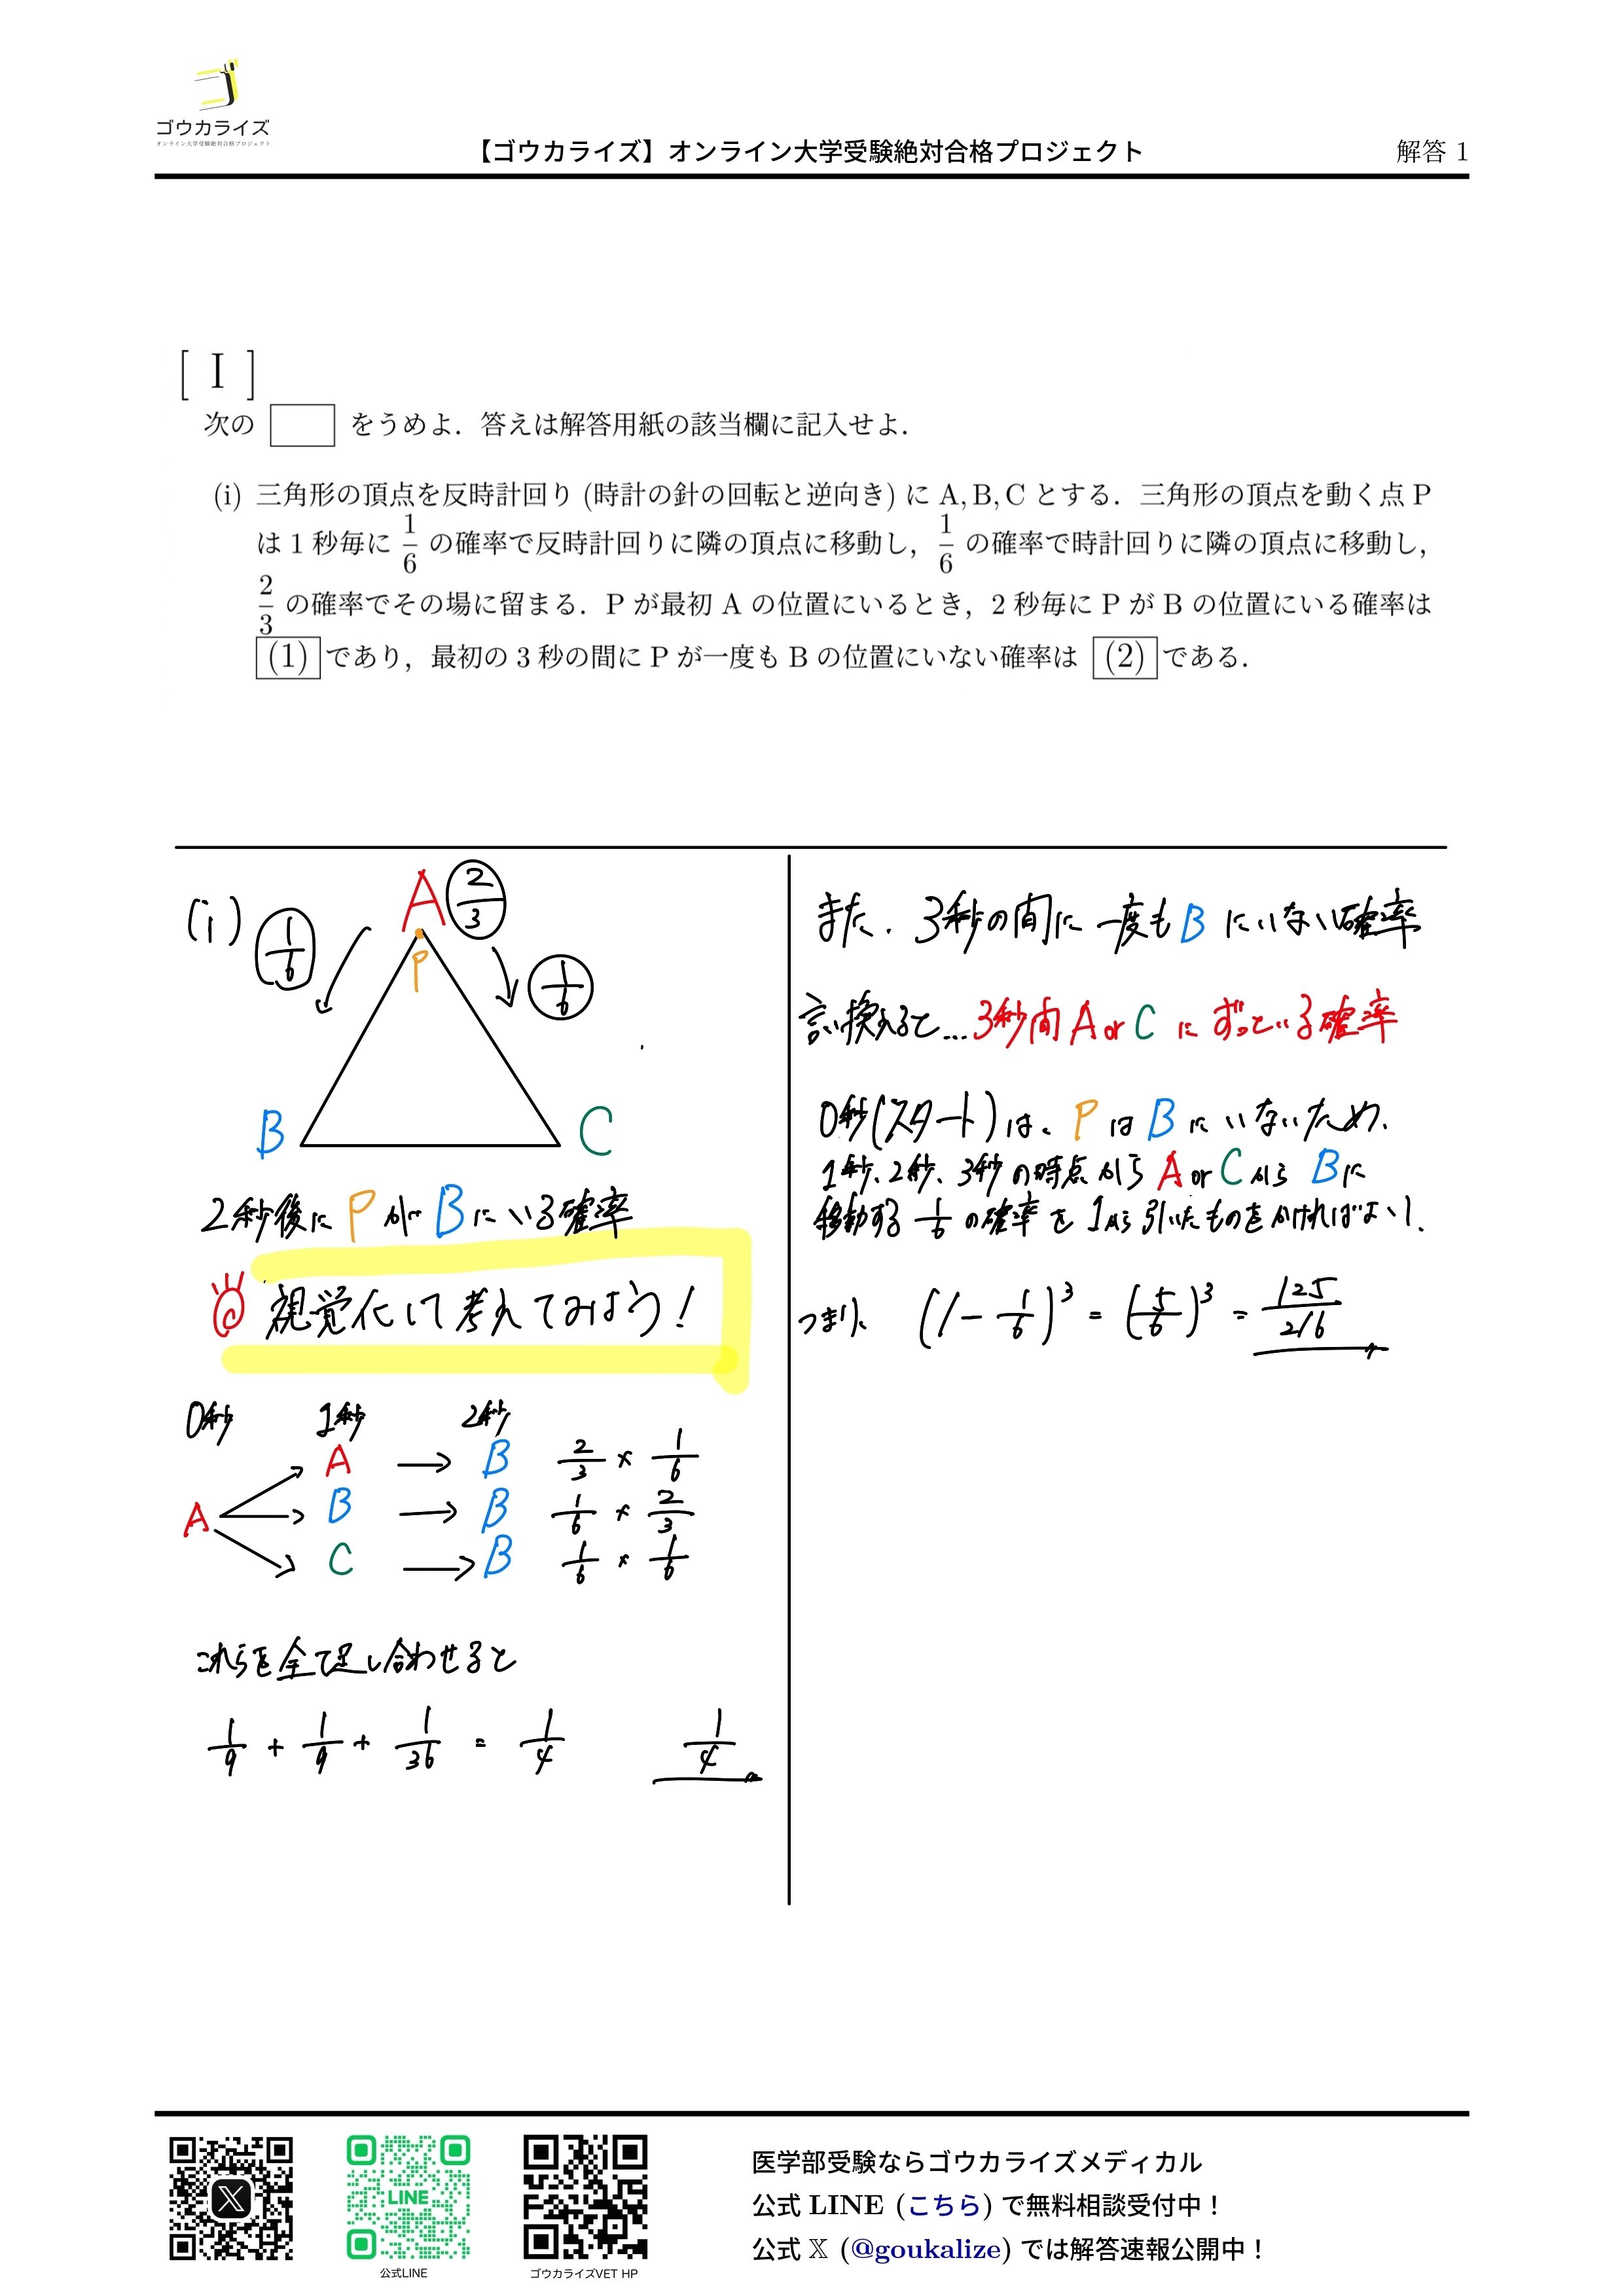 ゴ
ゴウカライズ
オンライン大学受験絶対合格プロジェクト
【ゴウカライズ】オンライン大学受験絶対合格プロジェクト
解答 1
[ I ]
次の をうめよ. 答えは解答用紙の該当欄に記入せよ.
(i) 三角形の頂点を反時計回り (時計の針の回転と逆向き) に A, B, C とする. 三角形の頂点を動く点 P
は 1 秒毎に 1/6 の確率で反時計回りに隣の頂点に移動し, 1/6 の確率で時計回りに隣の頂点に移動し,
2/3 の確率でその場に留まる. P が最初 A の位置にいるとき, 2 秒毎に P が B の位置にいる確率は
(1) であり, 最初の 3 秒の間に P が一度も B の位置にいない確率は (2) である.
(i) 1/6 A 2/3
P 1/6
B C
2秒後に P が B にいる確率
視覚化して考えてみよう!
0秒 1秒 2秒
A → B 2/3 × 1/6
A B → B 1/6 × 2/3
C → B 1/6 × 1/6
これらを全て足し合わせると
1/9 + 1/9 + 1/36 = 1/4 1/4
また、3秒の間に一度も B にいない確率
言い換えると...3秒間 A or C にずっといる確率
0秒(スタート)は、P は B にいないため、
1秒、2秒、3秒の時点から A or C から B に
移動する 1/6 の確率を 1から引いたものをかければよい.
つまり、 (1 - 1/6)³ = (5/6)³ = 125/216
LINE
公式LINE
ゴウカライズVET HP
医学部受験ならゴウカライズメディカル
公式 LINE (こちら) で無料相談受付中!
公式 𝕏 (@goukalize) では解答速報公開中!